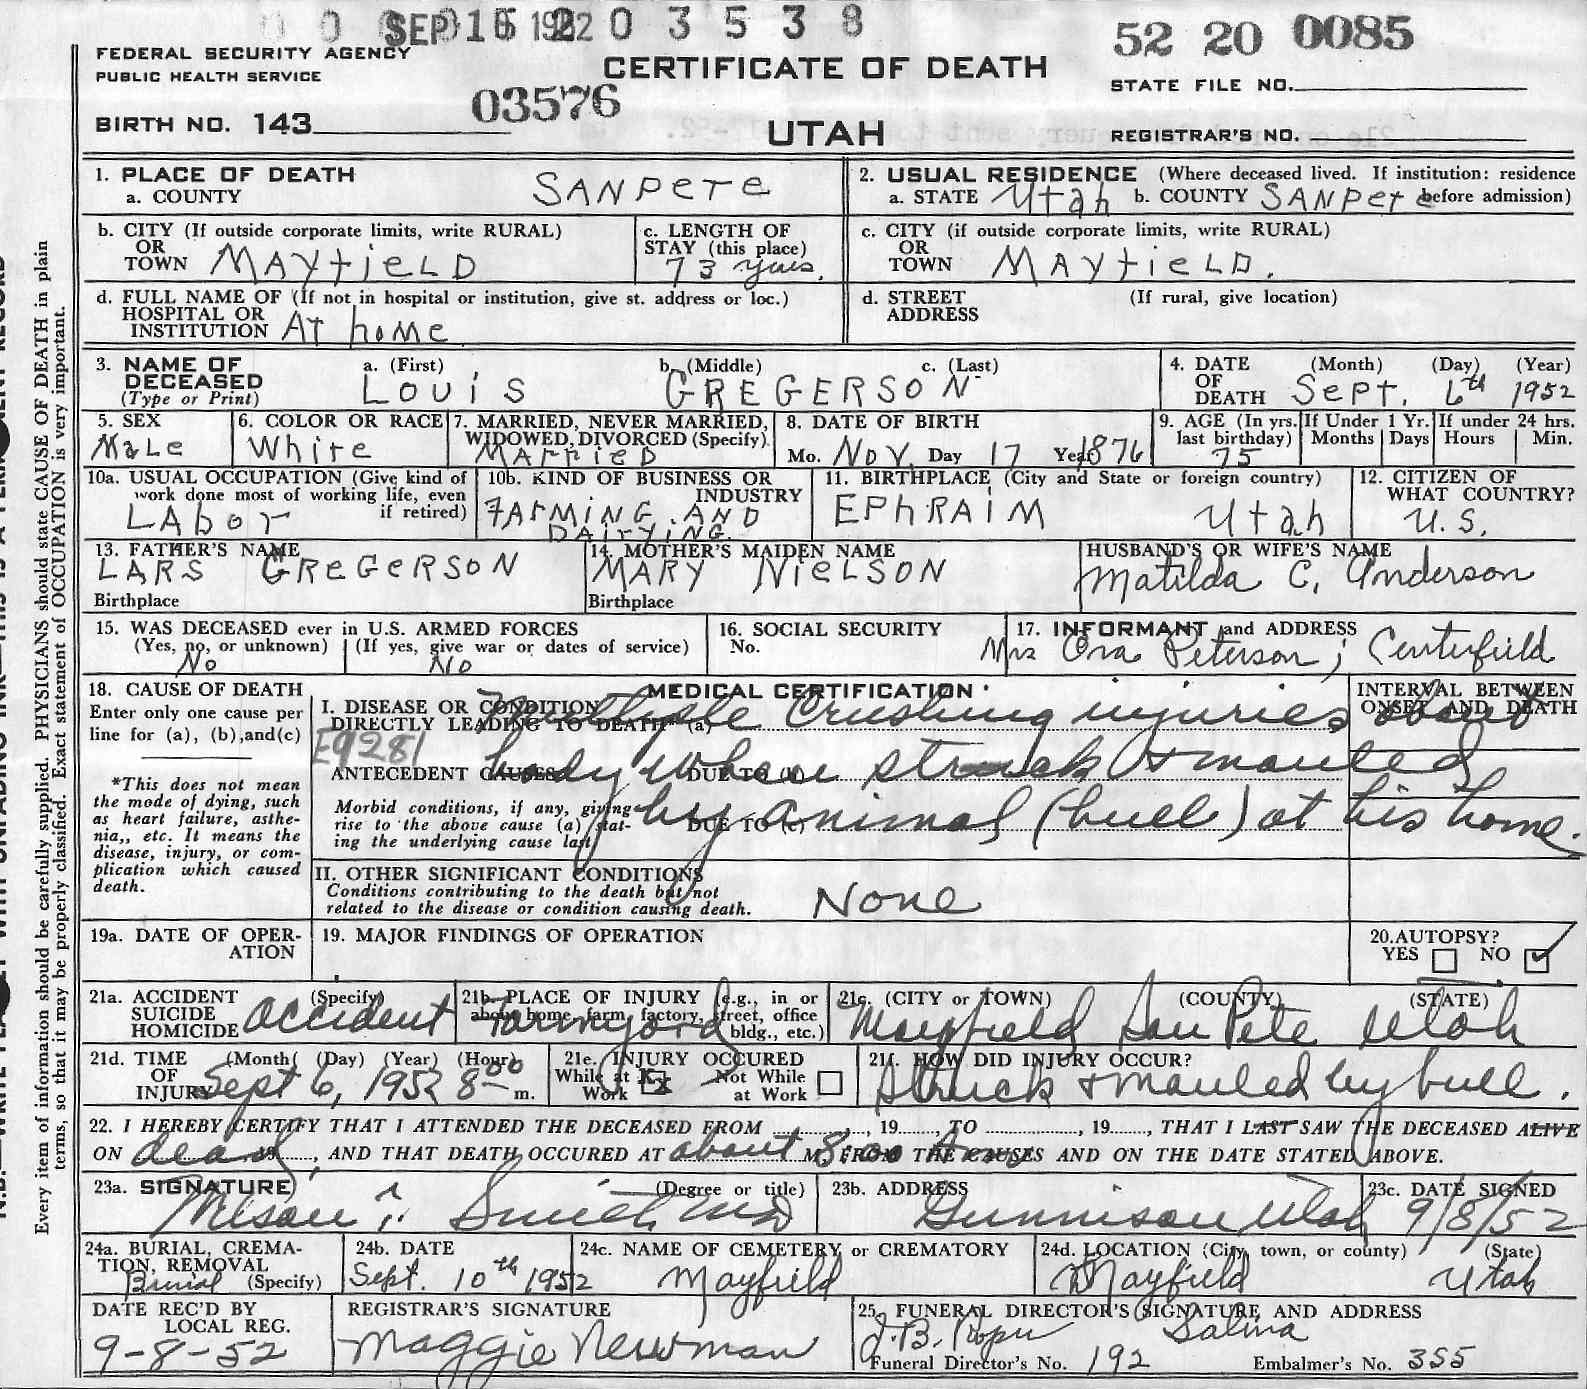 SEP 16 1952 0 3 5 3 8
52 20 0085
FEDERAL SECURITY AGENCY
PUBLIC HEALTH SERVICE
CERTIFICATE OF DEATH
STATE FILE NO.
03576
BIRTH NO. 143
UTAH
REGISTRAR'S NO.
1. PLACE OF DEATH
a. COUNTY SANPETE
2. USUAL RESIDENCE (Where deceased lived. If institution: residence before admission)
a. STATE Utah b. COUNTY SANPETE
b. CITY (If outside corporate limits, write RURAL)
OR
TOWN MAYFIELD
c. LENGTH OF
STAY (this place)
73 years.
c. CITY (if outside corporate limits, write RURAL)
OR
TOWN MAYFIELD.
d. FULL NAME OF (If not in hospital or institution, give st. address or loc.)
HOSPITAL OR
INSTITUTION At home
d. STREET (If rural, give location)
ADDRESS
3. NAME OF
DECEASED
(Type or Print)
a. (First) b. (Middle) c. (Last)
LOUIS GREGERSON
4. DATE (Month) (Day) (Year)
OF
DEATH Sept. 6th 1952
5. SEX
Male
6. COLOR OR RACE
White
7. MARRIED, NEVER MARRIED,
WIDOWED, DIVORCED (Specify)
MARRIED
8. DATE OF BIRTH
Mo. Nov. Day 17 Year 1876
9. AGE (In yrs. last birthday)
75
If Under 1 Yr.
Months Days
If under 24 hrs.
Hours Min.
10a. USUAL OCCUPATION (Give kind of
work done most of working life, even
if retired)
LABor
10b. KIND OF BUSINESS OR
INDUSTRY
FARMING AND
DAIRYING.
11. BIRTHPLACE (City and State or foreign country)
EPHRAIM Utah
12. CITIZEN OF
WHAT COUNTRY?
U.S.
13. FATHER'S NAME
LARS GREGERSON
Birthplace
14. MOTHER'S MAIDEN NAME
MARY NIELSON
Birthplace
HUSBAND'S OR WIFE'S NAME
Matilda C. Anderson
15. WAS DECEASED ever in U.S. ARMED FORCES
(Yes, no, or unknown) (If yes, give war or dates of service)
No No
16. SOCIAL SECURITY
No.
17. INFORMANT and ADDRESS
Mrs Ora Peterson; Centerfield
18. CAUSE OF DEATH
Enter only one cause per
line for (a), (b), and (c)
*This does not mean
the mode of dying, such
as heart failure, asthe-
nia,, etc. It means the
disease, injury, or com-
plication which caused
death.
MEDICAL CERTIFICATION
INTERVAL BETWEEN
ONSET AND DEATH
I. DISEASE OR CONDITION
DIRECTLY LEADING TO DEATH* (a)
Multiple Crushing injuries about
E9281
ANTECEDENT CAUSES DUE TO (b)
body when struck & mauled
Morbid conditions, if any, giving
rise to the above cause (a) stat-
ing the underlying cause last.
DUE TO (c)
by animal (bull) at his home.
II. OTHER SIGNIFICANT CONDITIONS
Conditions contributing to the death but not
related to the disease or condition causing death.
None
19a. DATE OF OPER-
ATION
19. MAJOR FINDINGS OF OPERATION
20. AUTOPSY?
YES NO ✓
21a. ACCIDENT (Specify)
SUICIDE
HOMICIDE accident
21b. PLACE OF INJURY (e.g., in or
about home, farm, factory, street, office
bldg., etc.)
Farmyard
21c. (CITY or TOWN) (COUNTY) (STATE)
Mayfield San Pete Utah
21d. TIME (Month) (Day) (Year) (Hour)
OF
INJURY Sept 6, 1952 8 00 m.
21e. INJURY OCCURED
While at Work X Not While at Work
21f. HOW DID INJURY OCCUR?
Struck & mauled by bull.
22. I HEREBY CERTIFY THAT I ATTENDED THE DECEASED FROM , 19 , TO , 19 , THAT I LAST SAW THE DECEASED ALIVE
ON dead 19 , AND THAT DEATH OCCURED AT about 8:00 M, FROM THE CAUSES AND ON THE DATE STATED ABOVE.
23a. SIGNATURE (Degree or title)
Smith MD
23b. ADDRESS
Gunnison Utah
23c. DATE SIGNED
9/8/52
24a. BURIAL, CREMA-
TION, REMOVAL
(Specify)
Burial
24b. DATE
Sept. 10th 1952
24c. NAME OF CEMETERY or CREMATORY
Mayfield
24d. LOCATION (City, town, or county) (State)
Mayfield Utah
DATE REC'D BY
LOCAL REG.
9-8-52
REGISTRAR'S SIGNATURE
Maggie Newman
25. FUNERAL DIRECTOR'S SIGNATURE AND ADDRESS
J. B. Roper Salina
Funeral Director's No. 192 Embalmer's No. 355
Every item of information should be carefully supplied. PHYSICIANS should state CAUSE OF DEATH in plain
terms, so that it may be properly classified. Exact statement of OCCUPATION is very important.